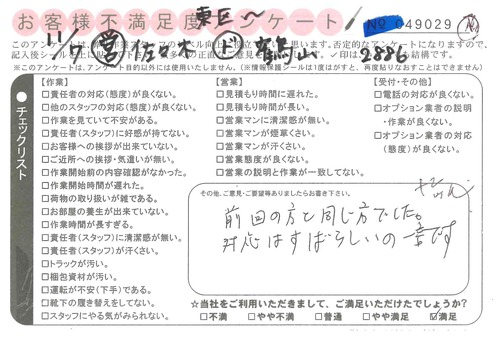 お客様不満足度アンケート
東E
№ 049029
11/1 営 佐々木 上 鶴山 2886
このアンケートは
否定的なアンケートになりますので、
✓印は
結構です。
※このアンケートは、アンケート目的以外には使用いたしません。（※情報保護シールは1度はがすと、再度貼りなおすことはできません）
チェックリスト
【作業】
□責任者の対応（態度）が良くない。
□他のスタッフの対応（態度）が良くない。
□作業を見ていて不安がある。
□責任者（スタッフ）に好感が持てない。
□お客様への挨拶が出来ていない。
□ご近所への挨拶・気遣いが無い。
□作業開始前の内容確認がなかった。
□作業開始時間が遅れた。
□荷物の取り扱いが雑である。
□お部屋の養生が出来ていない。
□作業時間が長すぎる。
□責任者（スタッフ）に清潔感が無い。
□責任者（スタッフ）が汗くさい。
□トラックが汚い。
□梱包資材が汚い。
□運転が不安（下手）である。
□靴下の履き替えをしてない。
□スタッフにやる気がみられない。
【営業】
□見積もり時間に遅れた。
□見積もり時間が長い。
□営業マンに清潔感が無い。
□営業マンが煙草くさい。
□営業マンが汗くさい。
□営業態度が良くない。
□営業の説明と作業が一致してない。
【受付・その他】
□電話の対応が良くない。
□オプション業者の説明
・作業が良くない。
□オプション業者の対応
（態度）が良くない。
その他、ご意見・ご要望等ありましたらお書き下さい。
前回の方と同じ方でした。
対応はすばらしいの一言です
☆当社をご利用いただきまして、ご満足いただけたでしょうか？
□不満 □やや不満 □普通 □やや満足 ☑満足